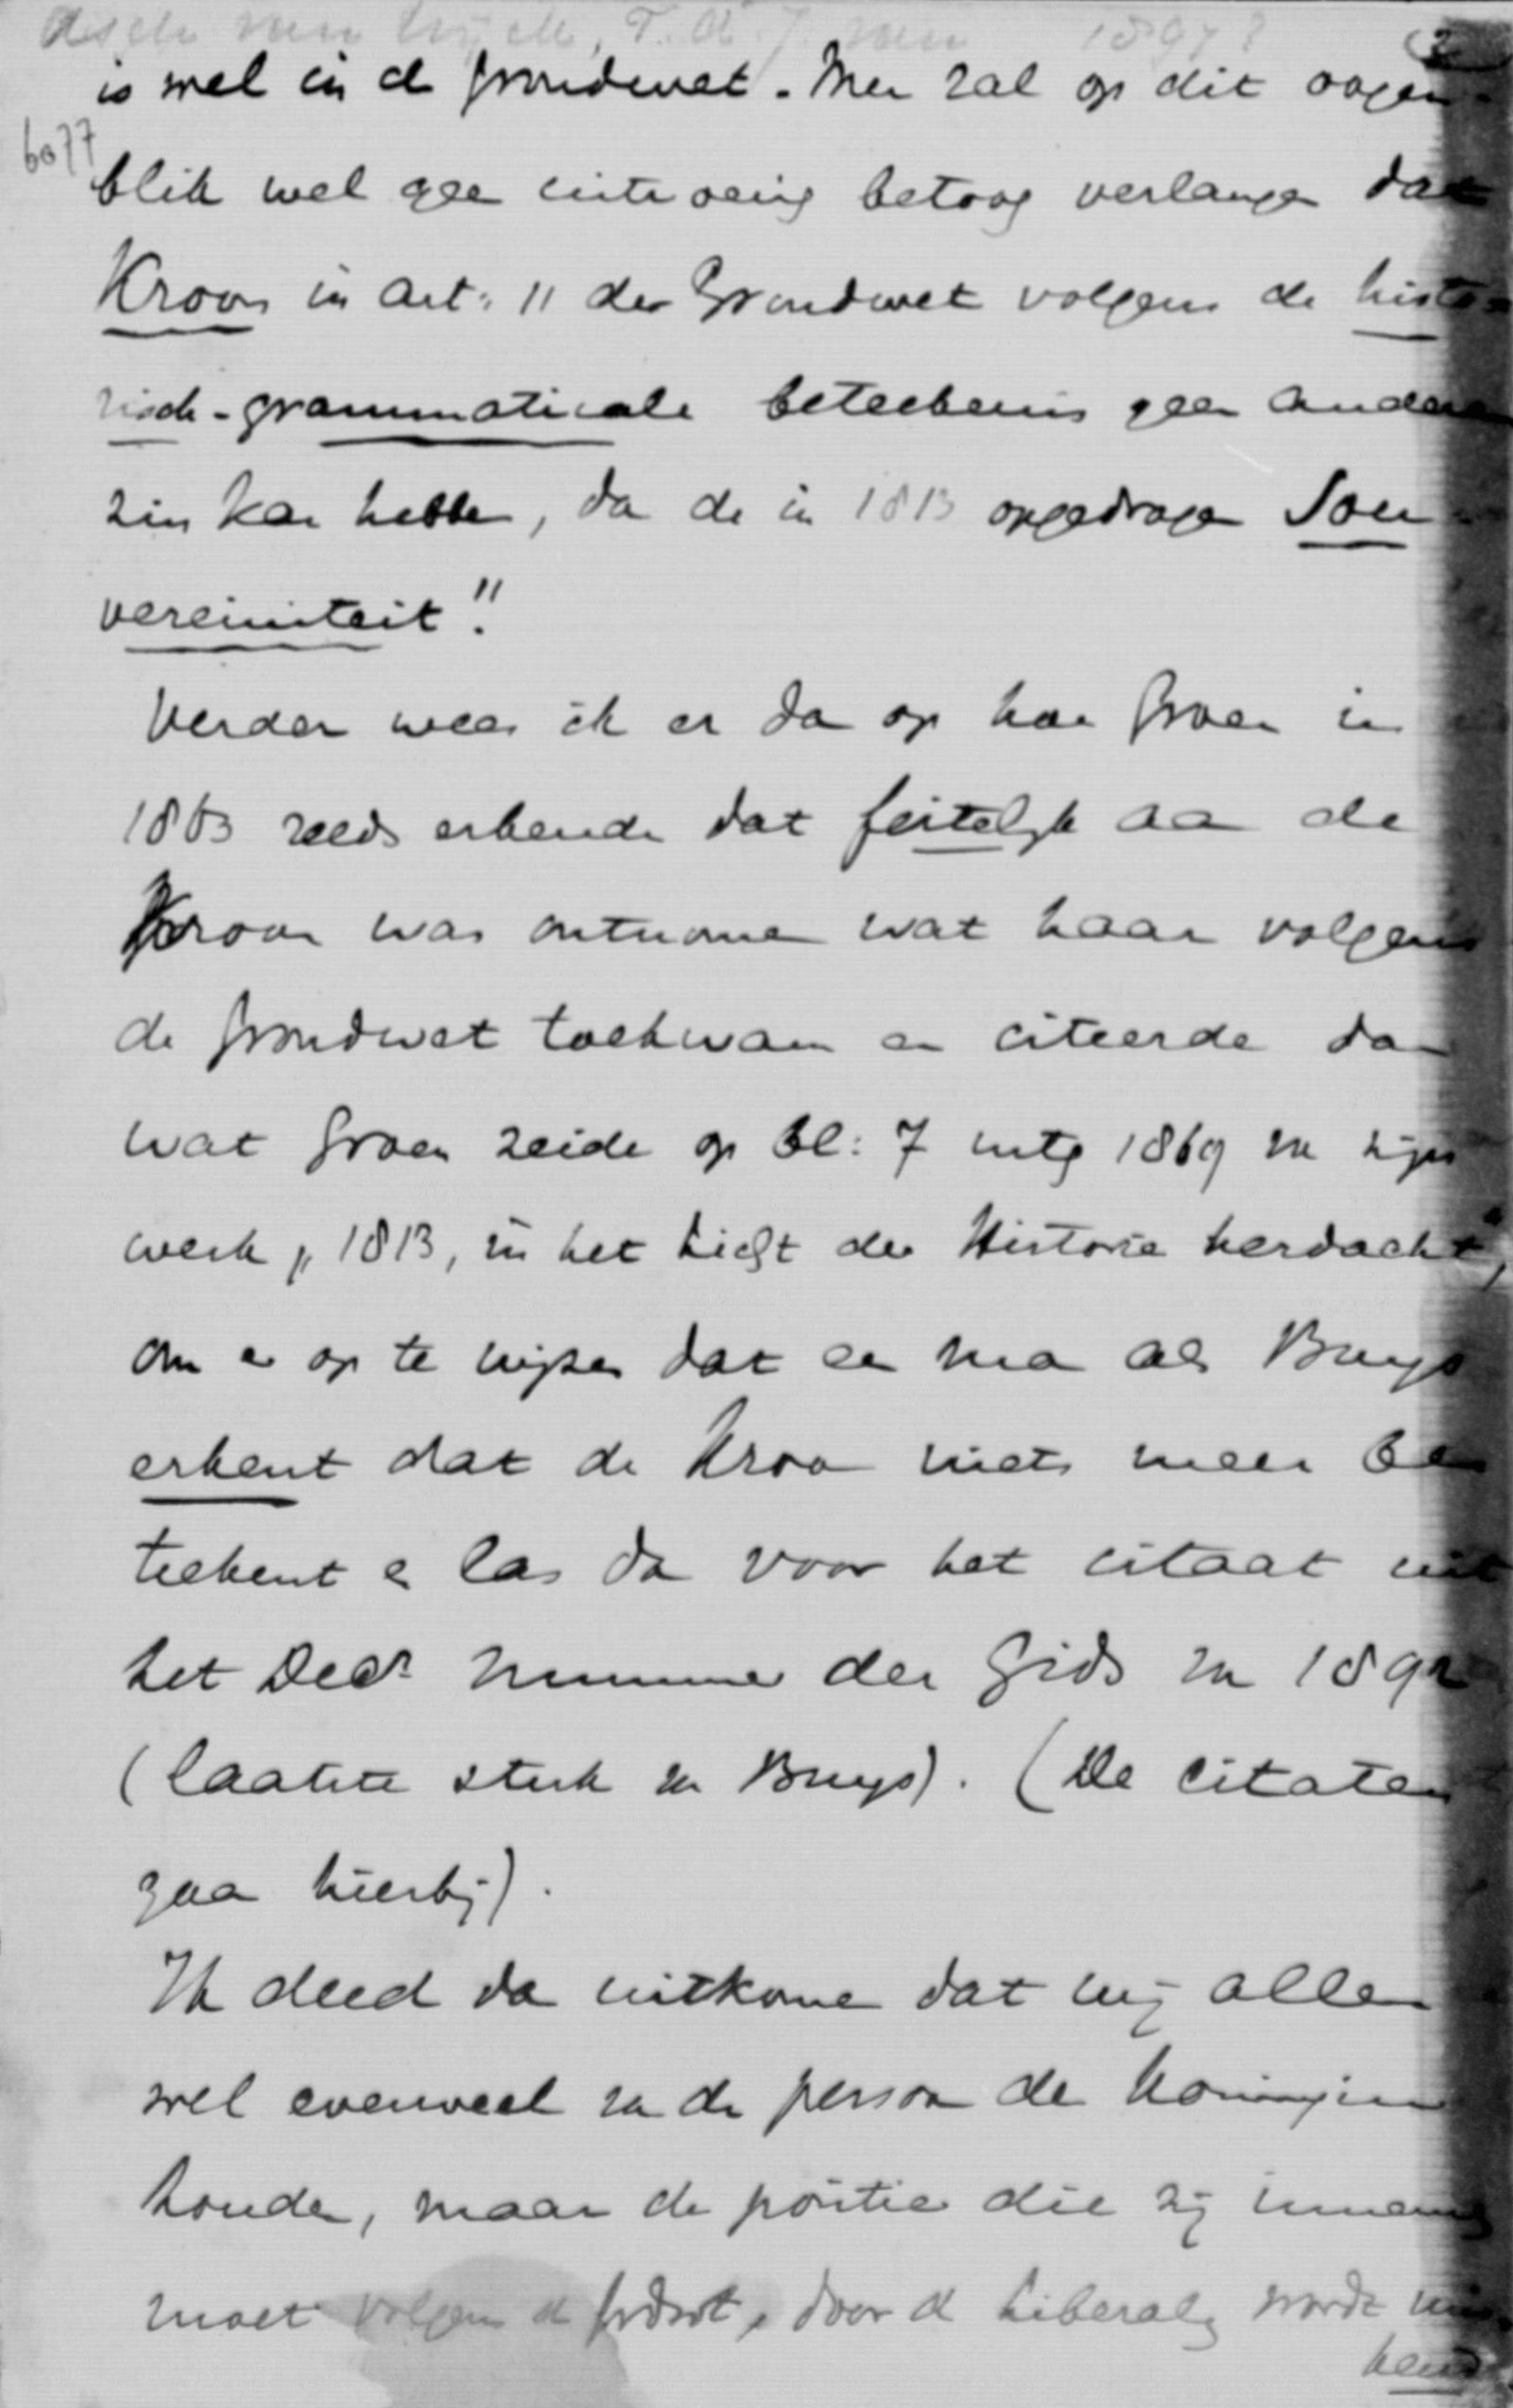 is wel in de grondwet. Men zal op dit oogen-
6077
blik wel geen uitvoerig betoog verlangen dat
Kroon in Art: 11 der Grondwet volgens de histo-
risch-grammaticale beteekenis geen anderen
zin kan hebben, dan de in 1813 opgedragen Sou-
vereiniteit".
Verder wees ik er dan op hoe Groen in
1863 reeds erkende dat feitelijk aan de
Kroon was ontnomen wat haar volgens
de grondwet toekwam en citeerde dan
wat Groen zeide op bl: 7 uitg 1869 van zijn
werk „1813, in het licht der Historie herdacht",
om er op te wijzen dat een man als Buys
erkent dat de Kroon niets meer be-
teekent en las dan voor het citaat uit
het Decr nummer der Gids van 1892
(laatste stuk van Buys). (De citaten
gaan hierbij).
Ik deed dan uitkomen dat wij allen
wel evenveel van de persoon der Koningin
houden, maar de positie die zij innemen
moet volgens de grdwt, door de liberalen wordt mis-
kend